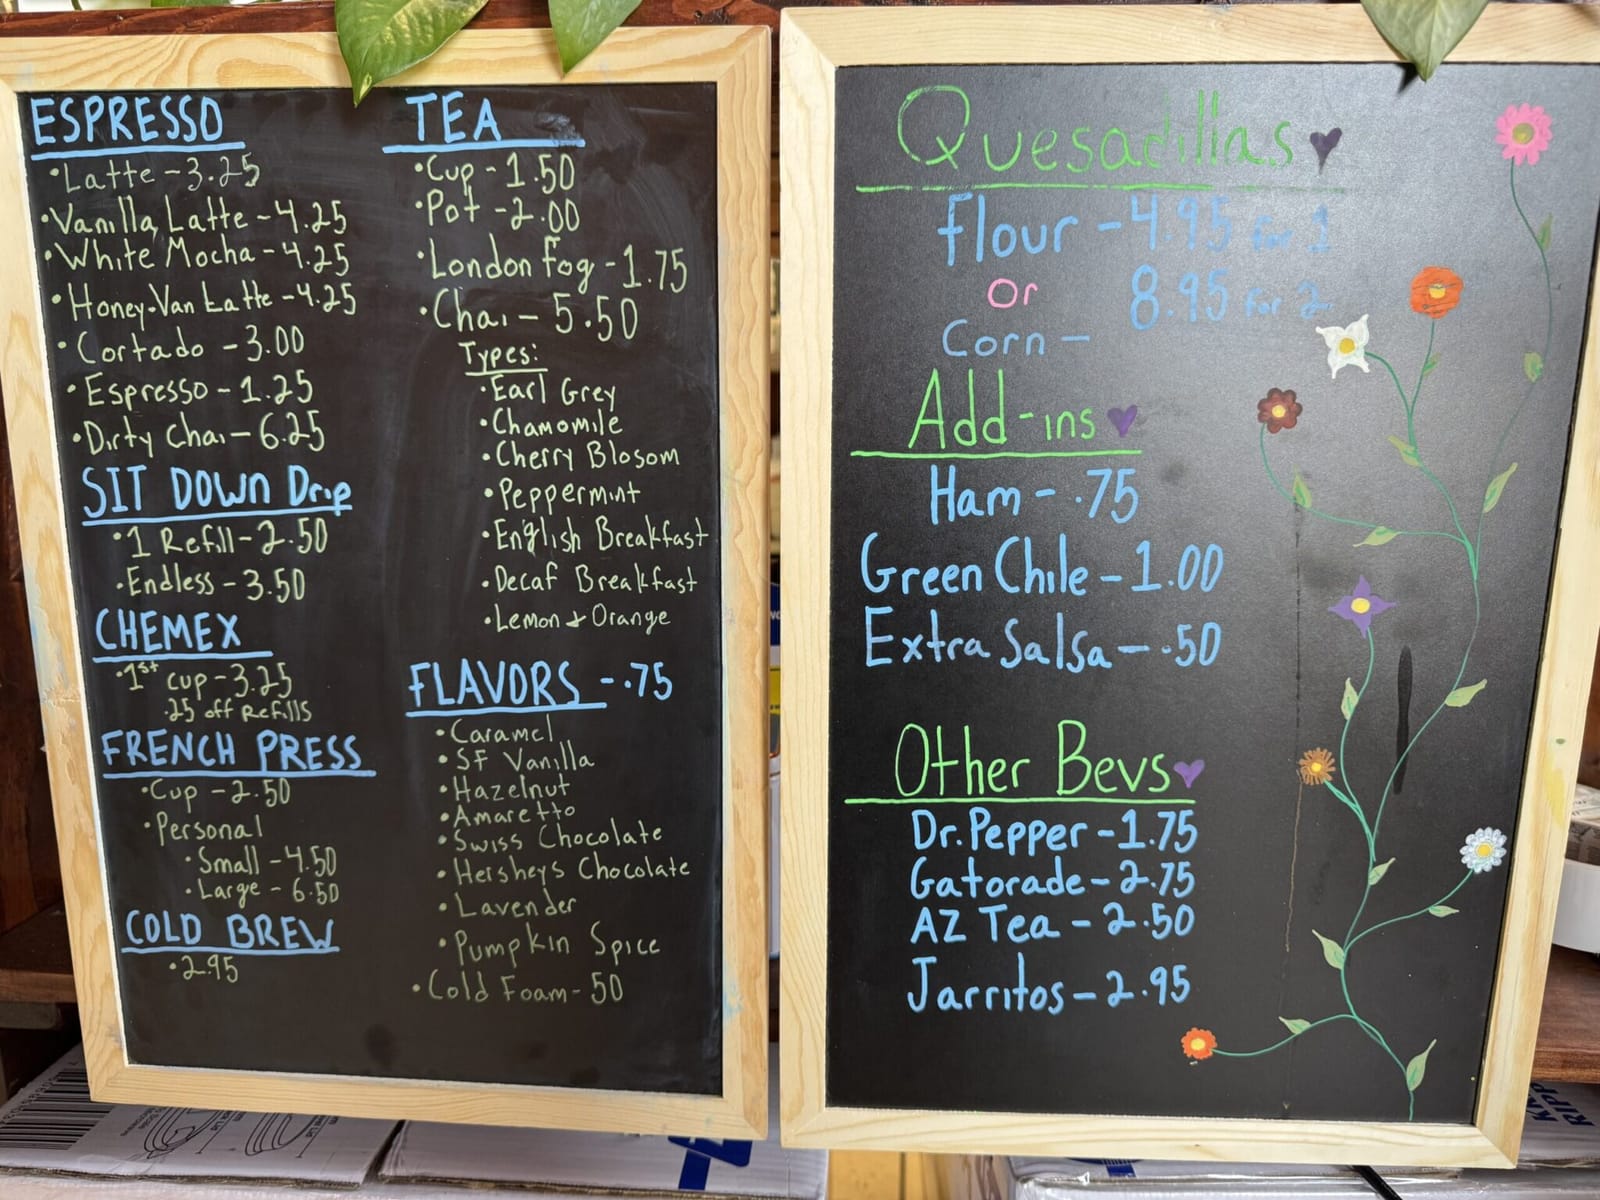 ESPRESSO
•Latte-3.25
•Vanilla Latte-4.25
•White Mocha-4.25
•Honey-Van Latte-4.25
•Cortado-3.00
•Espresso-1.25
•Dirty Chai-6.25
SIT DOWN Drip
•1 Refill-2.50
•Endless-3.50
CHEMEX
•1st cup-3.25
.25 off Refills
FRENCH PRESS
•Cup-2.50
•Personal
•Small-4.50
•Large-6.50
COLD BREW
•2.95
TEA
•Cup-1.50
•Pot-2.00
•London Fog-1.75
•Chai-5.50
Types:
•Earl Grey
•Chamomile
•Cherry Blosom
•Peppermint
•English Breakfast
•Decaf Breakfast
•Lemon & Orange
FLAVORS-.75
•Caramel
•SF Vanilla
•Hazelnut
•Amaretto
•Swiss Chocolate
•Hersheys Chocolate
•Lavender
•Pumpkin Spice
•Cold Foam-50
Quesadillas
Flour-4.95 for 1
or 8.95 for 2
Corn-
Add-ins
Ham-.75
Green Chile-1.00
Extra Salsa-.50
Other Bevs
Dr.Pepper-1.75
Gatorade-2.75
AZ Tea-2.50
Jarritos-2.95